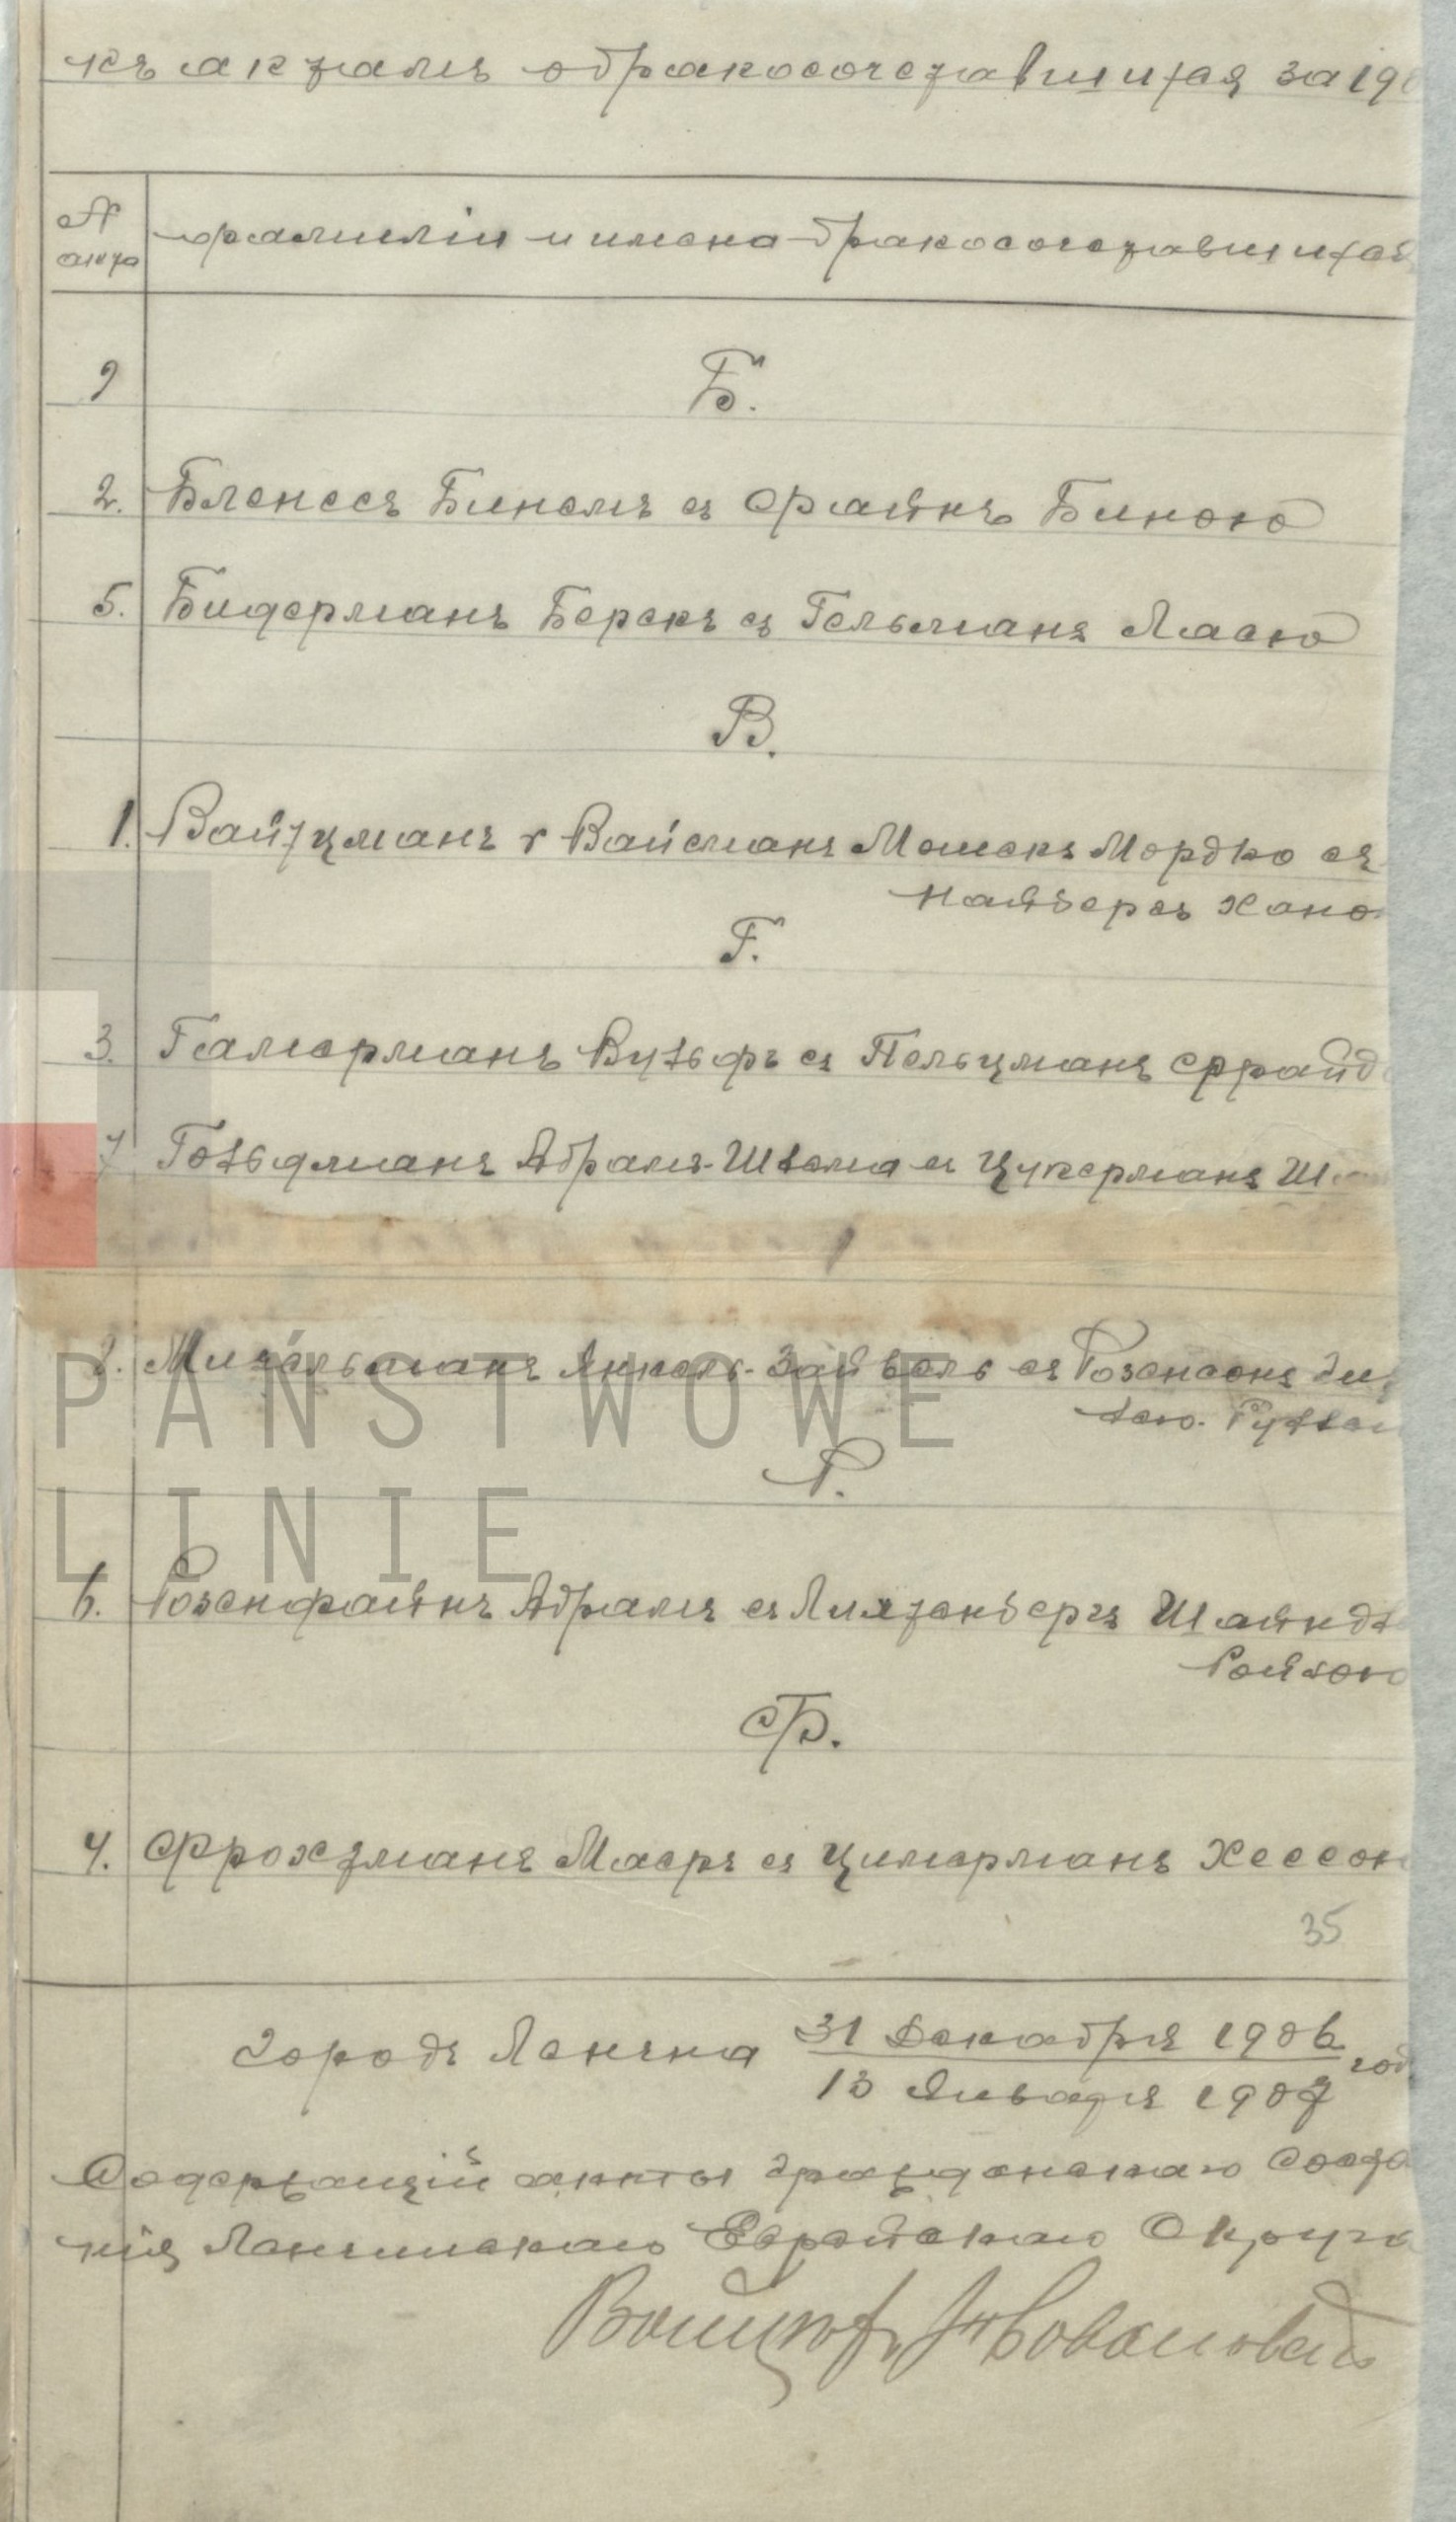 къ актамъ о бракосочетавшихся за 190
№ акта
фамиліи и имена бракосочетавшихся
9 Б.
2. Бленесъ Бинемъ съ Файнъ Биною
5. Бидерманъ Берекъ съ Гельманъ Ласею
В.
1. Вайцманъ v Вайсманъ Мошекъ Мордко съ
Найбергъ Хано
Г.
3. Гамерманъ Вульфъ съ Пельцманъ Фрайд
7 Гольдманъ Абрамъ-Шлема съ Цукерманъ
Михельманъ Янкель-Зайвель съ Розенсонъ
Р.
6. Розенфайнъ Абрамъ съ Лихтенбергъ Шайндл
Ройзою
Ф.
4. Фрохтманъ Маеръ съ Цимерманъ Хессою
35
городъ Ленчна 31 Декабря 1906 год
13 Января 1907
Содержащій акты гражданскаго состо
нія Ленчинскаго Еврейскаго Округа
PAŃSTWOWE
LINIE